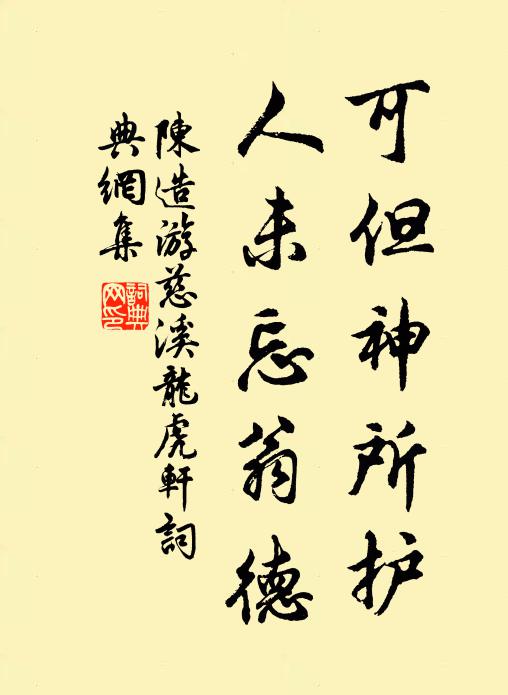 可但神所护
人未忘翁德
陳造游慈溪龍虎軒詞
典網集
詞典
网印